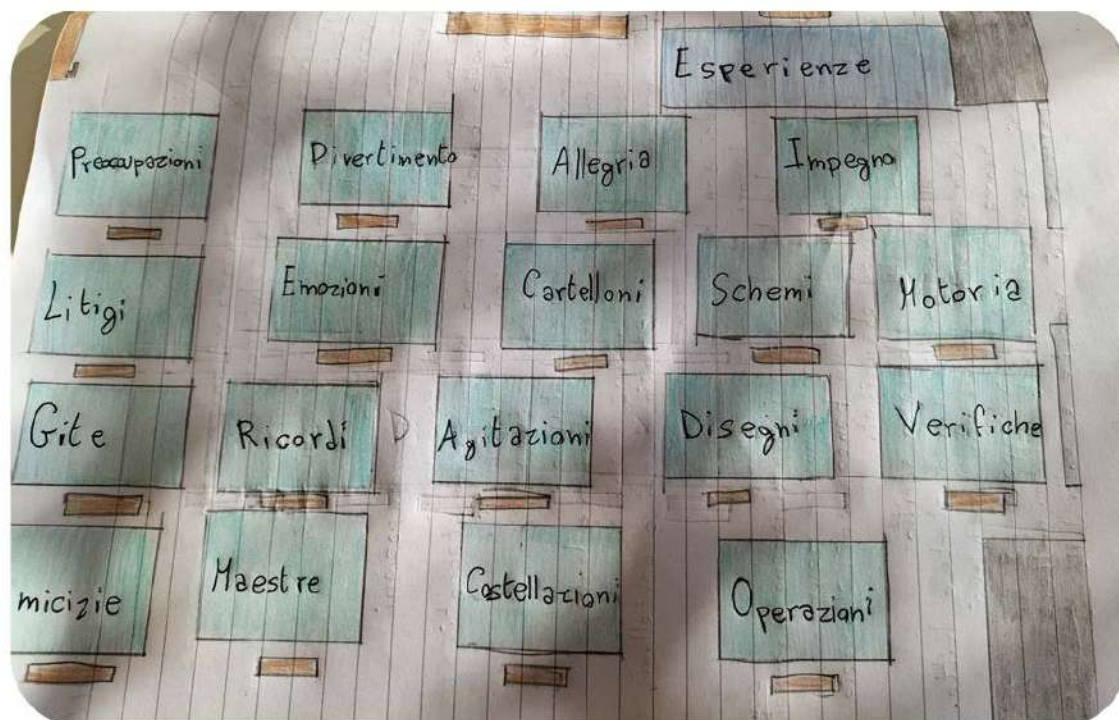 Esperienze
Preoccupazioni
Divertimento
Allegria
Impegno
Litigi
Emozioni
Cartelloni
Schemi
Motoria
Gite
Ricordi
D
Agitazioni
Disegni
Verifiche
micizie
Maestre
Costellazioni
Operazioni